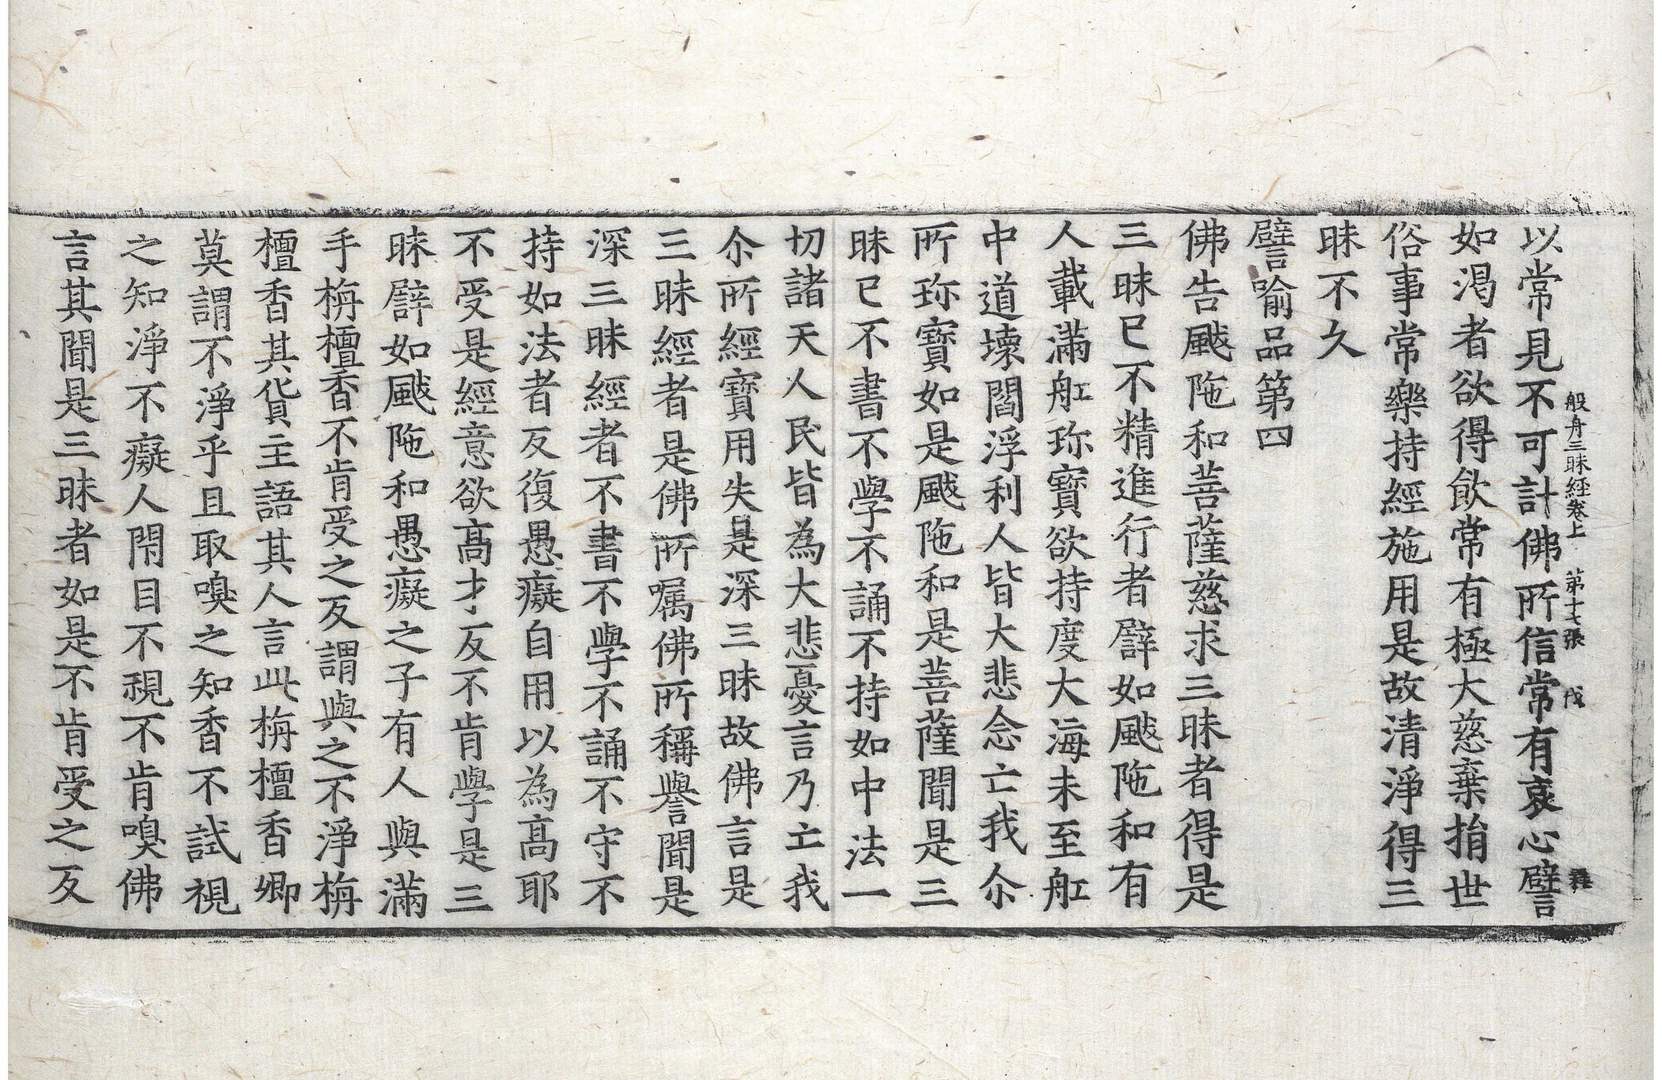 以常見不可計佛所信常有哀心譬
般舟三昧經卷上 第十七張 戊
如渴者欲得飮常有極大慈棄捐世
俗事常樂持經施用是故清淨得三
昧不久
譬喻品第四
佛告颰陁和菩薩慈求三昧者得是
三昧已不精進行者辟如颰陁和有
人載滿舩珎寶欲持度大海未至舩
中道壞閻浮利人皆大悲念亡我尒
所珎寶如是颰陁和是菩薩聞是三
昧已不書不學不誦不持如中法一
切諸天人民皆為大悲憂言乃亡我
尒所經寶用失是深三昧故佛言是
三昧經者是佛所嘱佛所稱譽聞是
深三昧經者不書不學不誦不守不
持如法者反復愚癡自用以為高耶
不受是經意欲高才反不肯學是三
昧辟如颰陁和愚癡之子有人與滿
手栴檀香不肯受之反謂與之不淨栴
檀香其貨主語其人言此栴檀香卿
莫謂不淨乎且取嗅之知香不試視
之知淨不癡人閇目不視不肯嗅佛
言其聞是三昧者如是不肯受之反